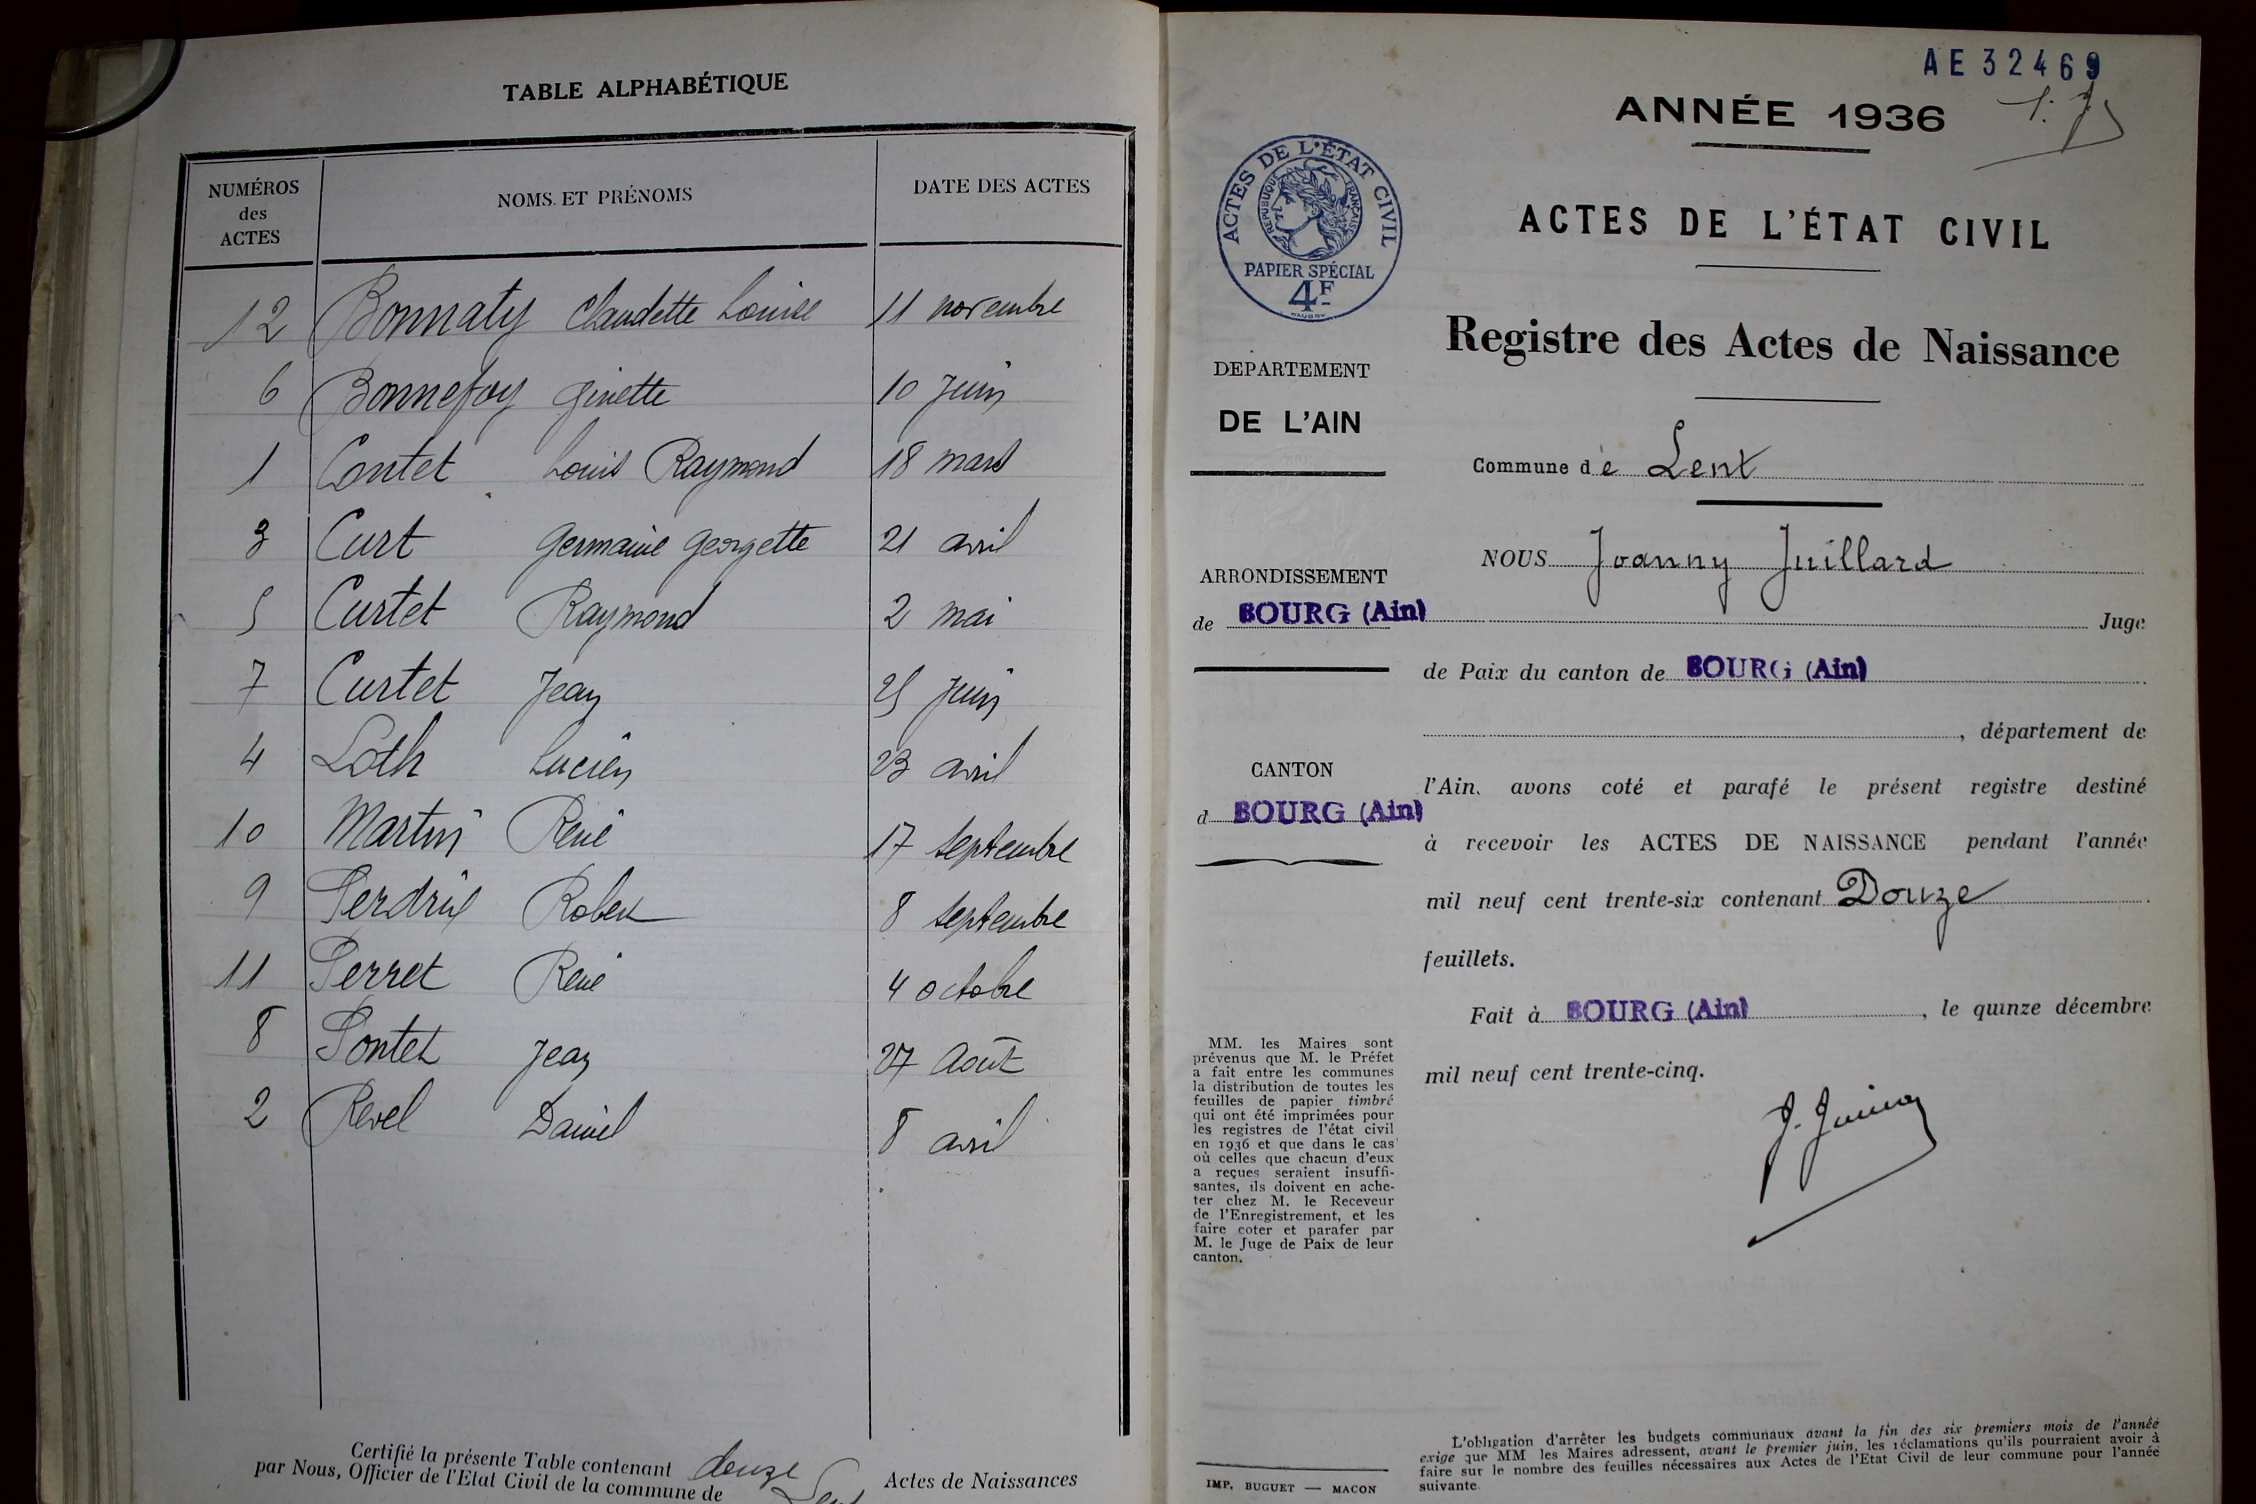 TABLE ALPHABÉTIQUE
NUMÉROS
des
ACTES
NOMS ET PRÉNOMS
DATE DES ACTES
12 Bonnaty Claudette Louise 11 novembre
6 Bonnefoy Ginette 10 Juin
1 Contet Louis Raymond 18 mars
3 Curt Germaine Georgette 21 avril
5 Curtet Raymond 2 mai
7 Curtet Jean 25 Juin
4 Loth Lucien 23 avril
10 Martin René 17 septembre
9 Perdrix Robert 8 septembre
11 Perret René 4 octobre
8 Pontet Jean 27 Août
2 Revel Daniel 8 avril
Certifié la présente Table contenant douze Actes de Naissances
par Nous, Officier de l'Etat Civil de la commune de Lent
AE32469
ANNÉE 1936
ACTES DE L'ÉTAT CIVIL
RÉPUBLIQUE FRANÇAISE
PAPIER SPÉCIAL
4F
ACTES DE L'ÉTAT CIVIL
Registre des Actes de Naissance
DEPARTEMENT
DE L'AIN
Commune de Lent
NOUS Joanny Juillard
ARRONDISSEMENT
de BOURG (Ain)
Juge
de Paix du canton de BOURG (Ain)
, département de
CANTON
d BOURG (Ain)
l'Ain, avons coté et parafé le présent registre destiné
à recevoir les ACTES DE NAISSANCE pendant l'année
mil neuf cent trente-six contenant Douze
feuillets.
Fait à BOURG (Ain), le quinze décembre
mil neuf cent trente-cinq.
MM. les Maires sont
prévenus que M. le Préfet
a fait entre les communes
la distribution de toutes les
feuilles de papier timbré
qui ont été imprimées pour
les registres de l'état civil
en 1936 et que dans le cas
où celles que chacun d'eux
a reçues seraient insuffi-
santes, ils doivent en ache-
ter chez M. le Receveur
de l'Enregistrement, et les
faire coter et parafer par
M. le Juge de Paix de leur
canton.
IMP. BUGUET — MACON
L'obligation d'arrêter les budgets communaux avant la fin des six premiers mois de l'année
exige que MM les Maires adressent, avant le premier juin, les réclamations qu'ils pourraient avoir à
faire sur le nombre des feuilles nécessaires aux Actes de l'Etat Civil de leur commune pour l'année
suivante.